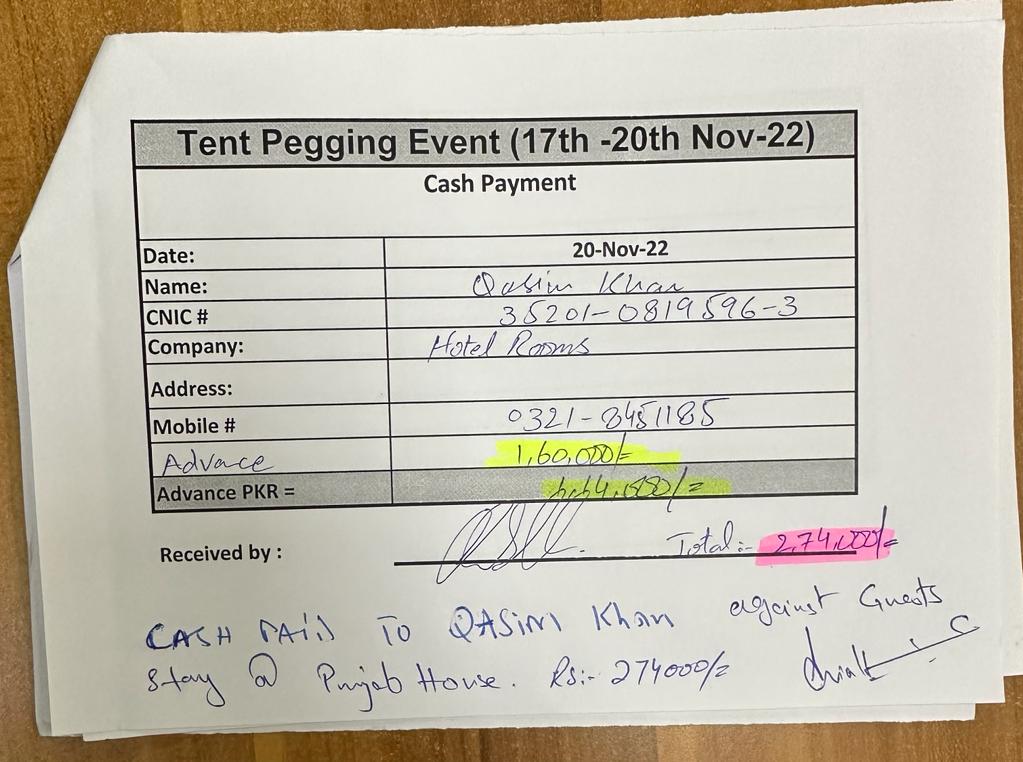 Tent Pegging Event (17th -20th Nov-22)
Cash Payment
Date: 20-Nov-22
Name: Qasim Khan
CNIC # 35201-0819596-3
Company: Hotel Rooms
Address:
Mobile # 0321-8451185
Advance 1,60,000/=
Advance PKR =
Received by : Total:- 2,74,000/=
CASH PAID TO QASIM Khan against Guests
Stay @ Punjab House. Rs:- 274000/=